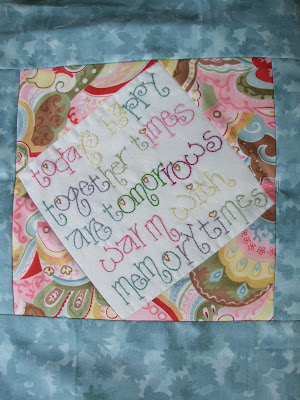 today's happy
together times
are tomorrows
warm with
memory times